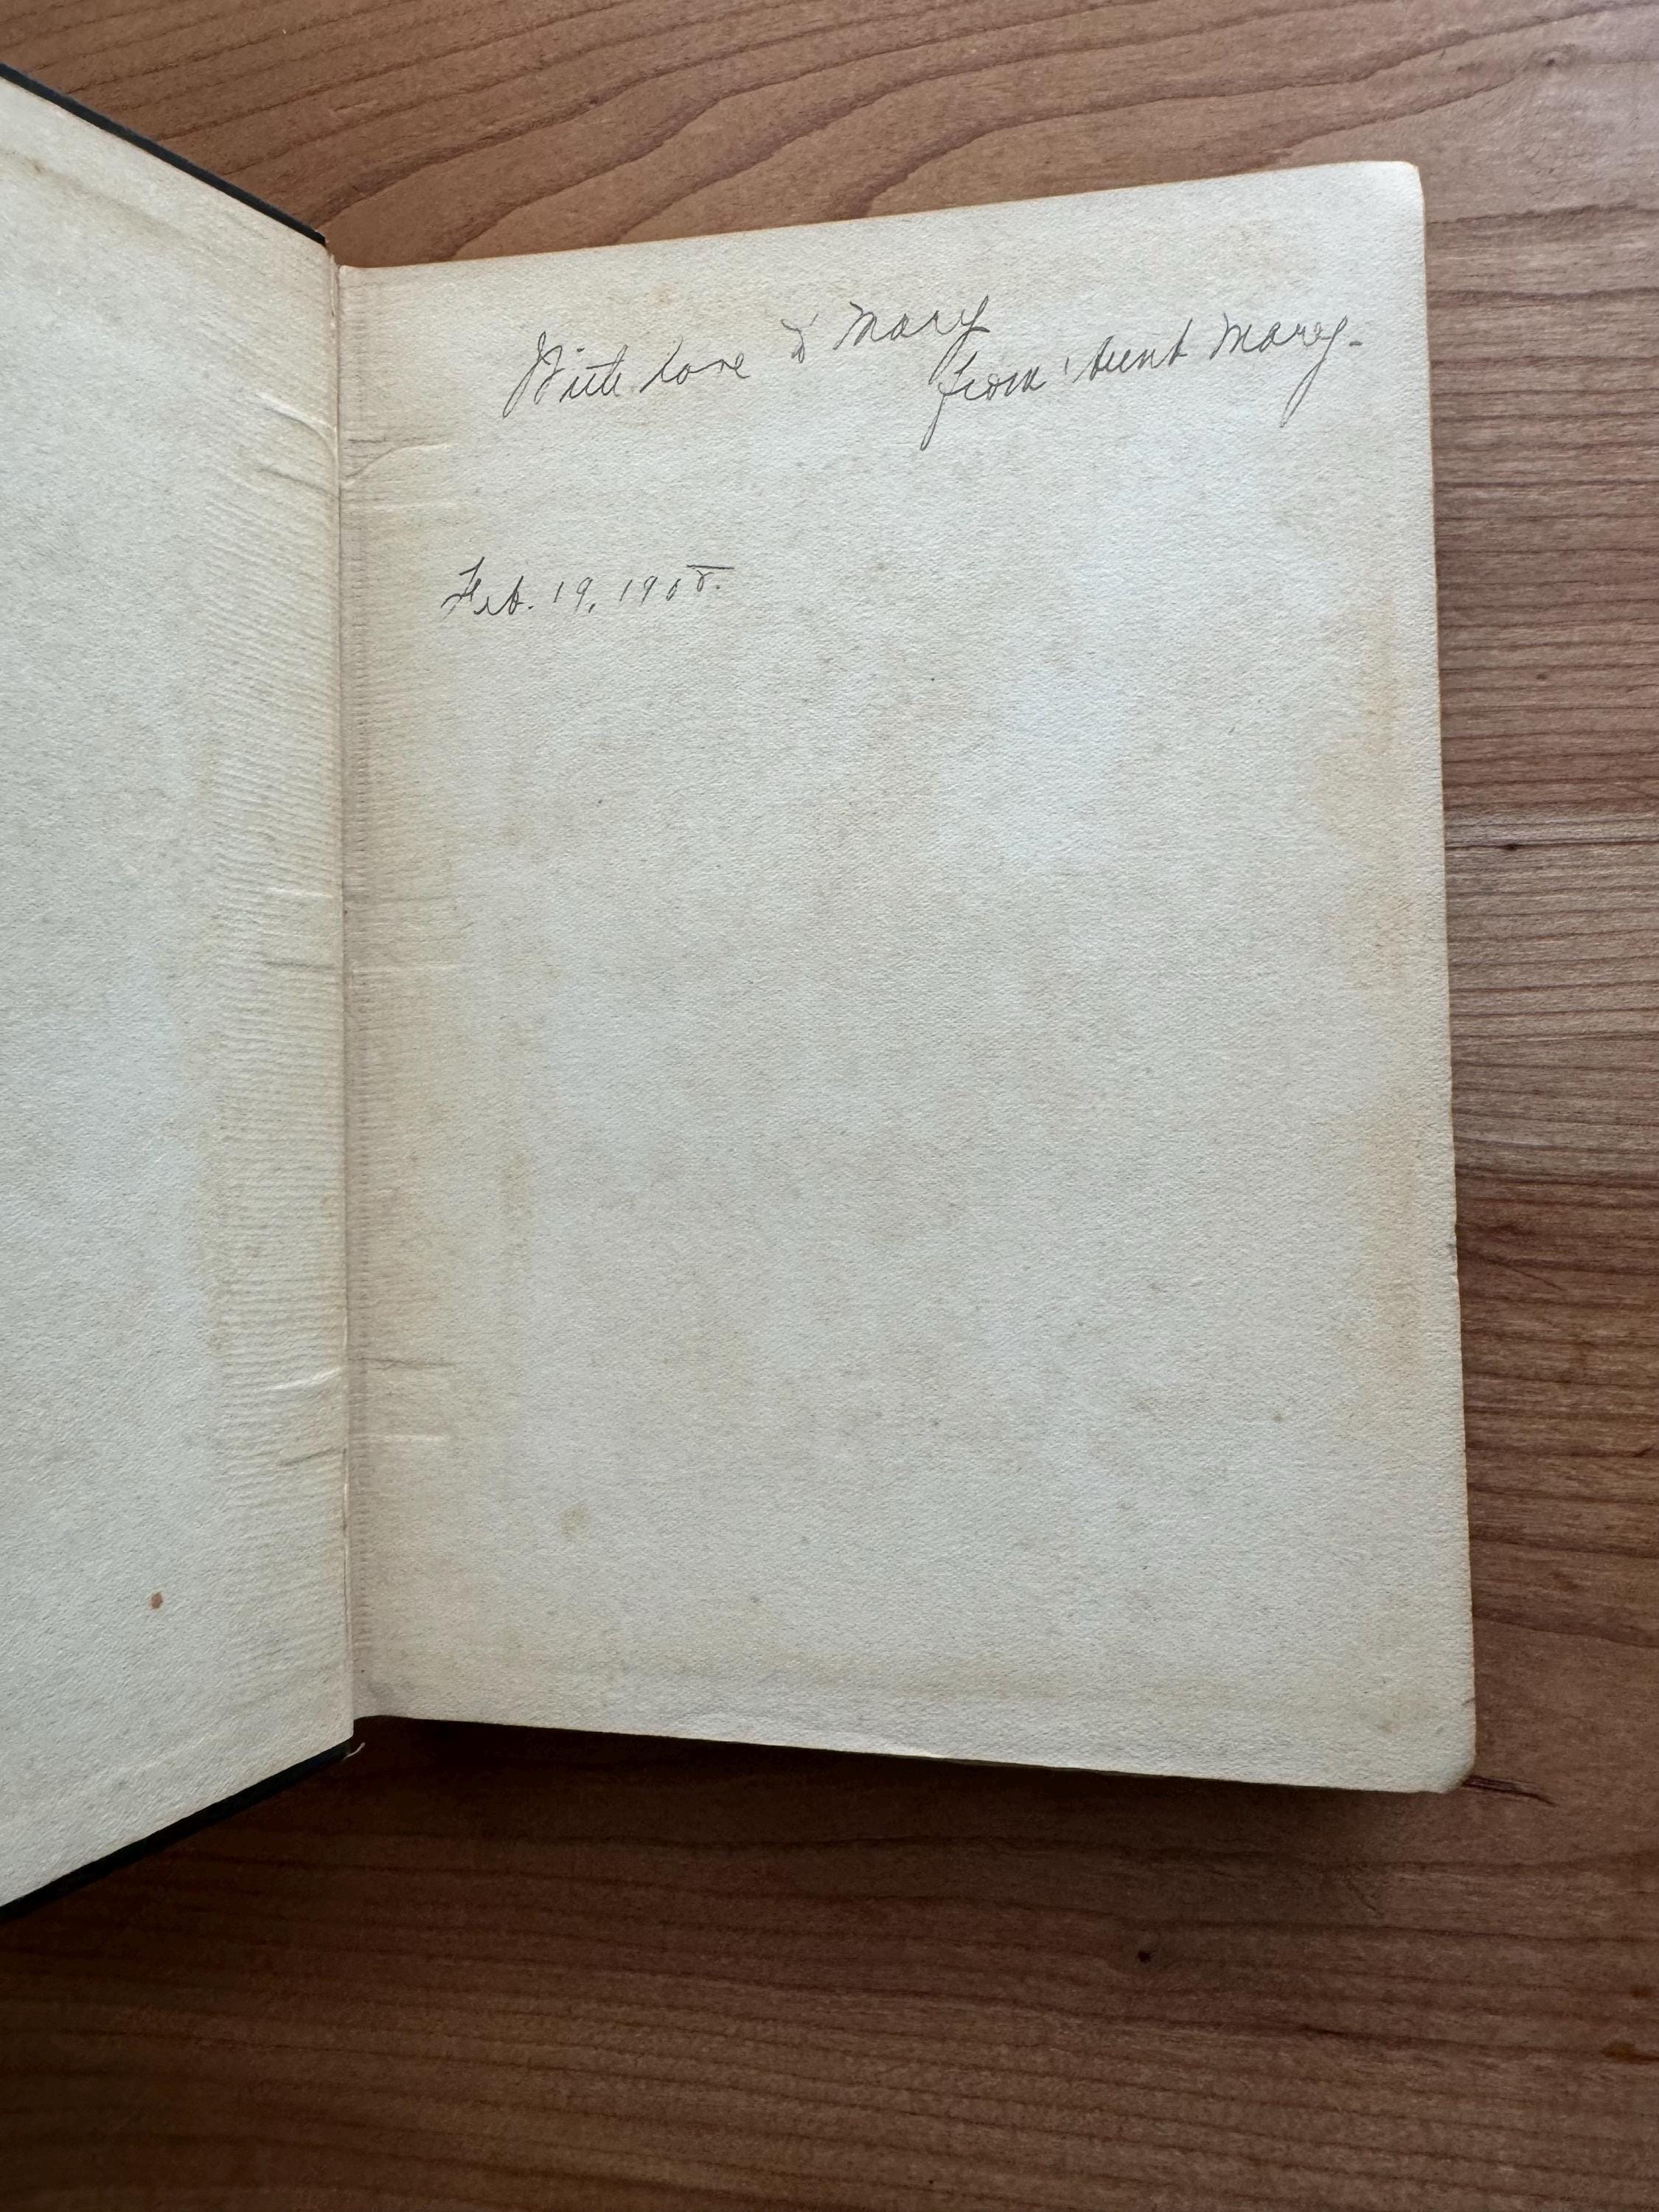 With love to Mary
from Aunt Mary-
Feb. 19, 1905.